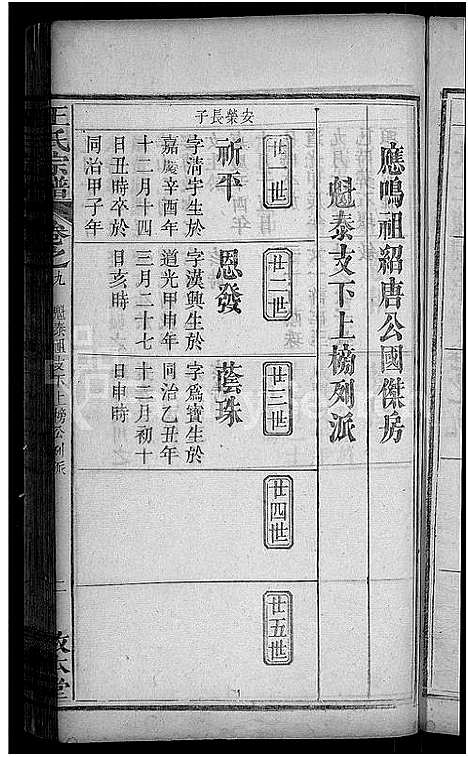 應鳴祖紹唐公國傑房
魁泰支下上榜列派
廿一世
廿二世
廿三世
廿四世
廿五世
安榮長子
祈平
字清宇生於
嘉慶辛酉年
十二月十四
日丑時卒於
同治甲子年
恩發
字漢興生於
道光甲申年
三月二十七
日亥時
蔭珠
字為寶生於
同治乙丑年
十二月初十
日申時
王氏宗譜
卷之九
魁泰支下上榜公列派
二
敦本堂